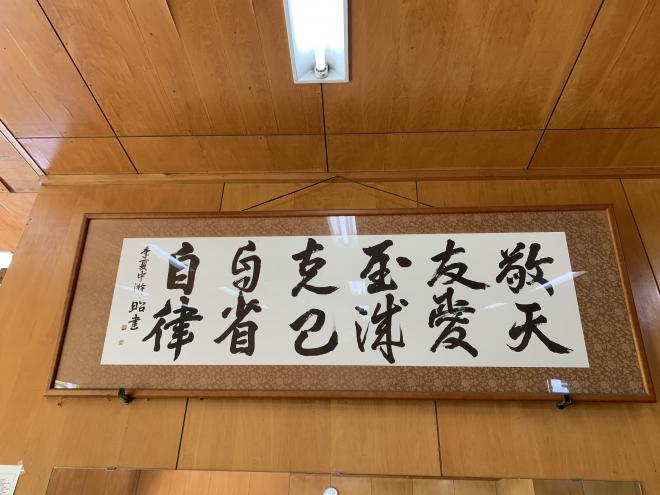 敬天
友愛
至誠
克己
自省
自律
季夏中澣 昭書